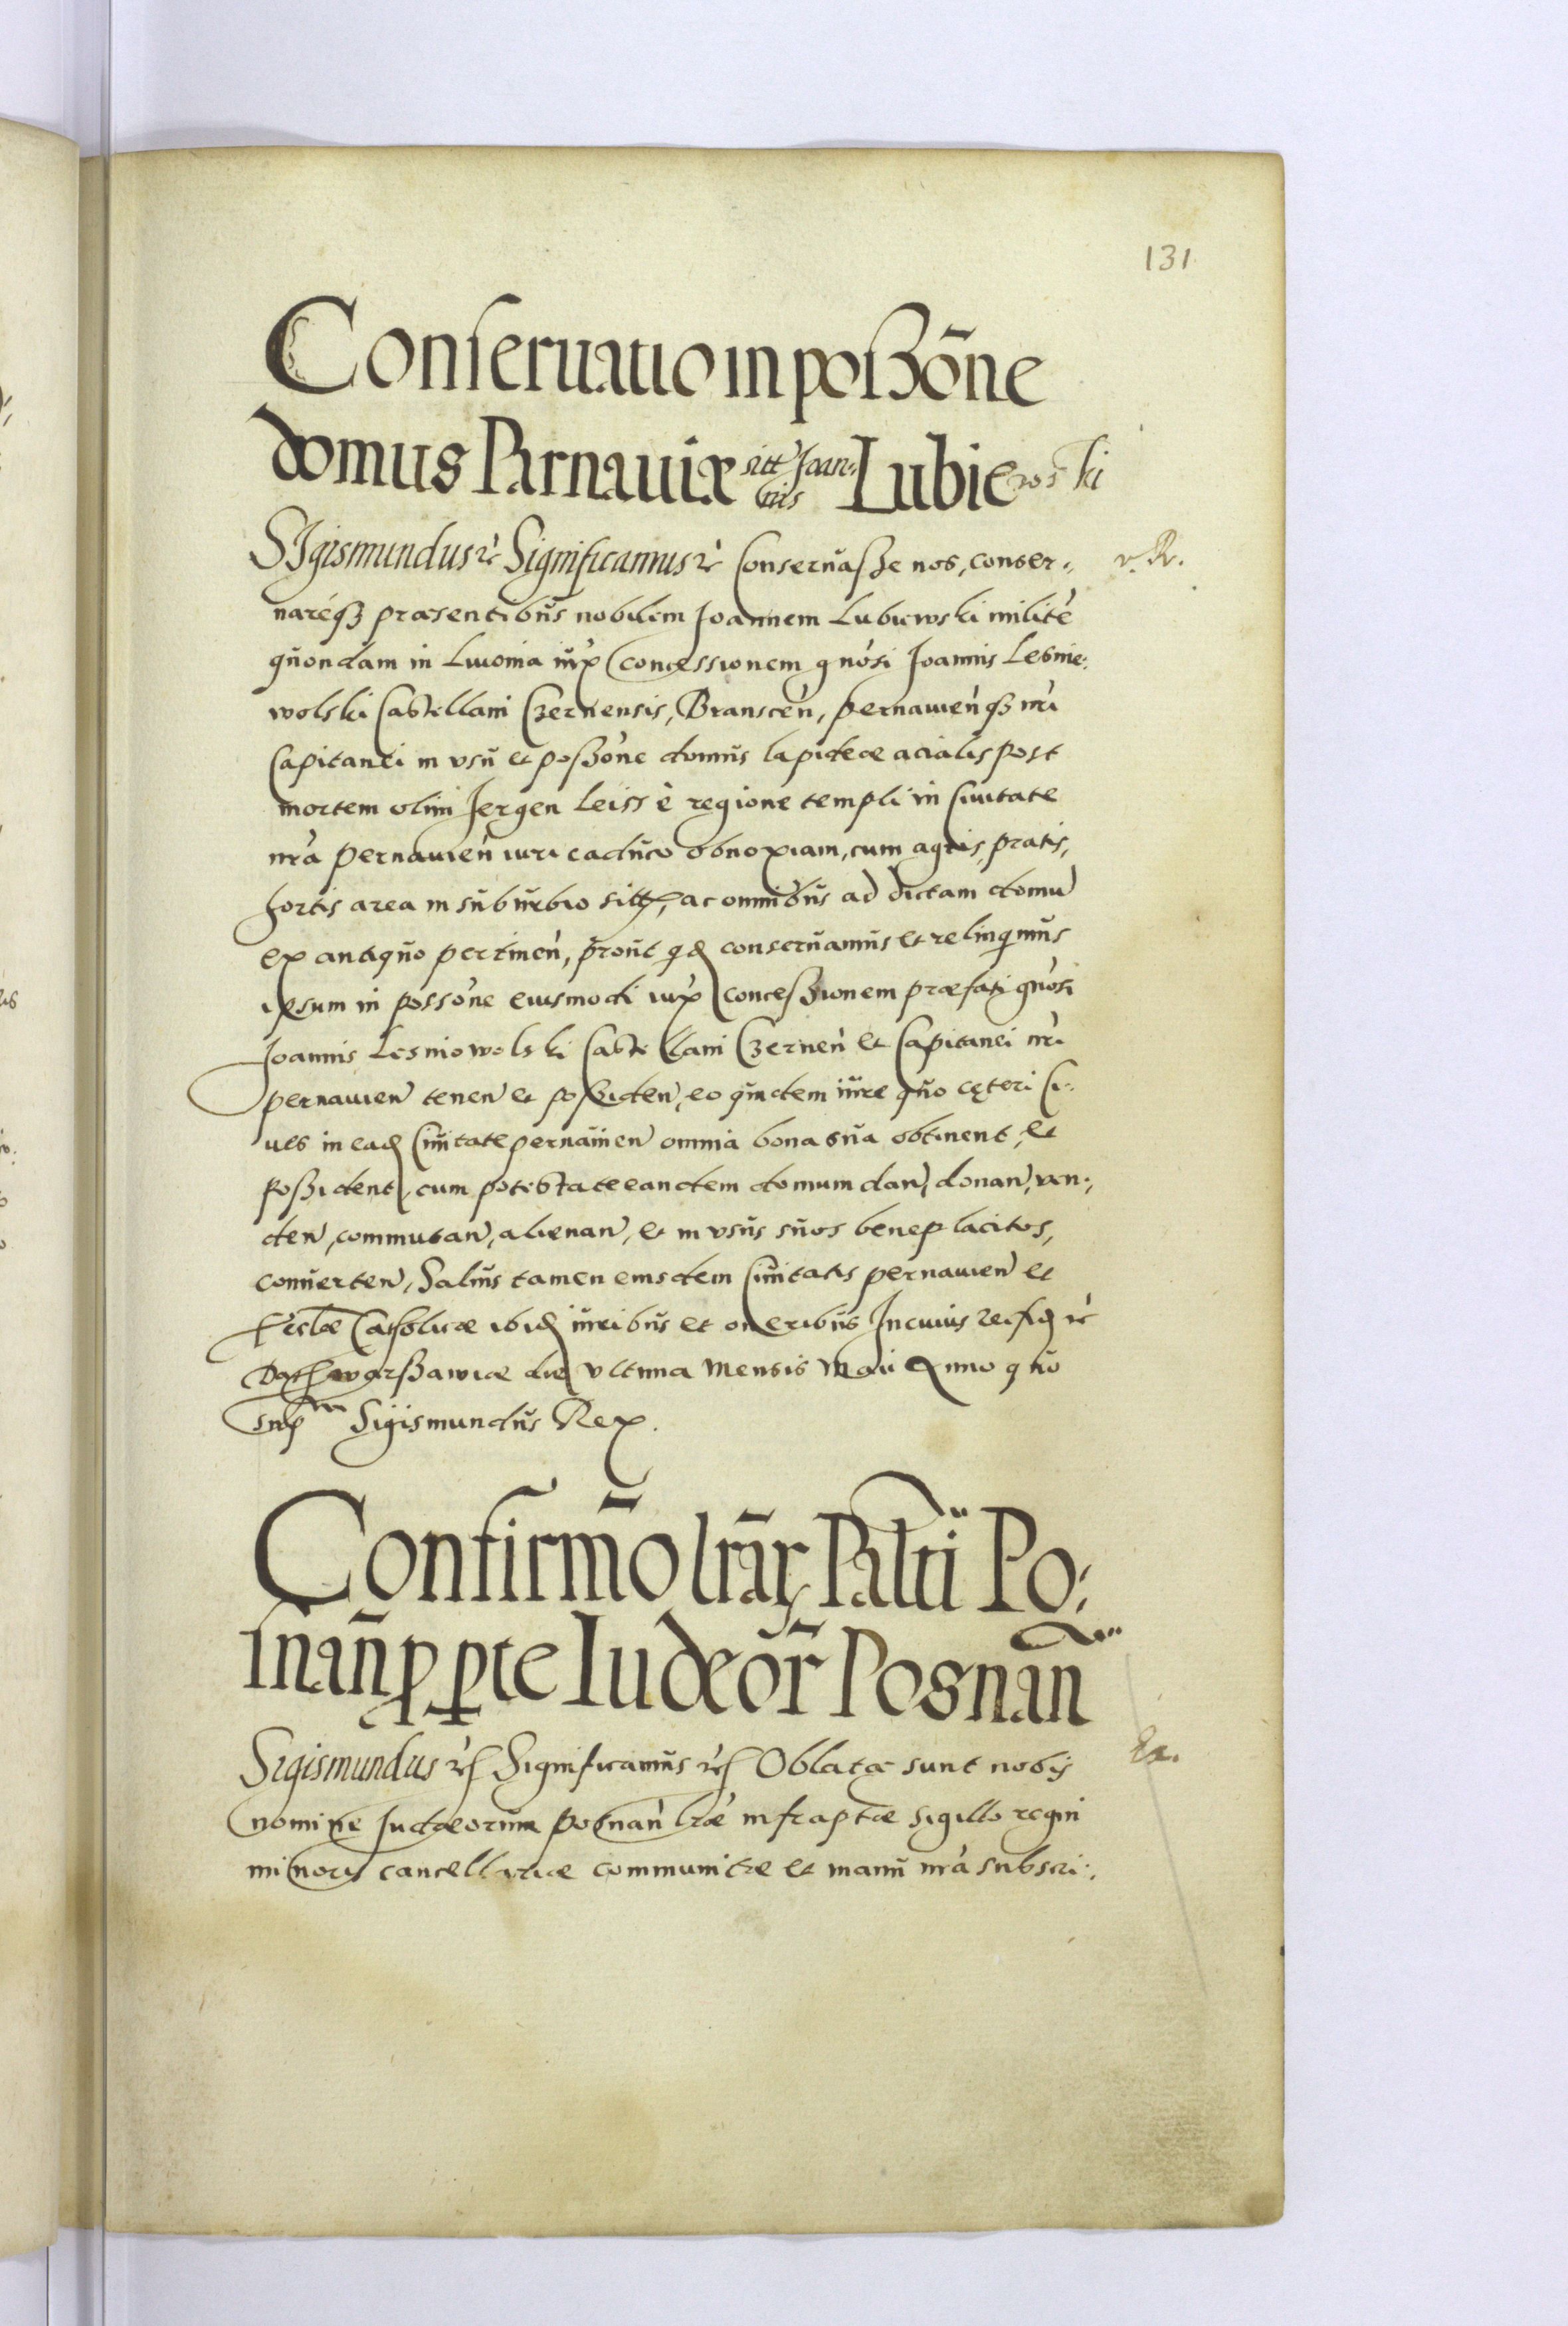 131
Conseruatio in poßōne
domus Parnauiæ sitt Joan: nis Lubiewski
SIgismundus rc Significamus rc Conseruaße nos, conser:, v. R.
uaréqȝ præsentibus nobilem Joannem Lubiewski militè
quondam in Liuonia iux Concessionem gnosi Joannis Lesnie:
wolski Castellani Czernensis, Branscen, pernauienqȝ nri
Capitanei in vsu et poßone domus lapideæ acialis post
mortem olim Jergen Leiss è regione templi in Ciuitate
nra pernauien iuri caduco obnoxiam, cum agris, pratis,
hortis area in suburbio sitt, ac omnibus ad dictam domu
ex antiquo pertinen, prout qd conseruamus et relinquimus
ipsum in possone eiusmodi iux Conceßionem præfati gnosi
Joannis Lesniowolski Castellani Czernen et Capitanei nri
pernauien tenen et poßiden, eo quidem iure quo cęteri Ci:
ues in ead Ciuitate pernauien omnia bona sua obtinent, et
poßident, cum potestate eandem domum dan, donan, ven:,
den, commutan, alienan, et in vsus suos beneplacitos,
conuerten, Saluis tamen eiusdem Ciuitatis pernauien et
Ecclæ Catholicæ ibid iuribus et oneribus In cuius rei fid rc
Dat warßawiæ die vltima Mensis Maii Anno quo
sup Sigismundus Rex.
Confirmo lrar Palti Po:
snan p pte Iudæor Posnan
Sigismundus rc Significamus rc Oblatæ sunt nobis Ex.
nomine Judæorum posnan lræ infraptæ sigillo regni
minoris cancellariæ communitæ et manu nra subscri:.